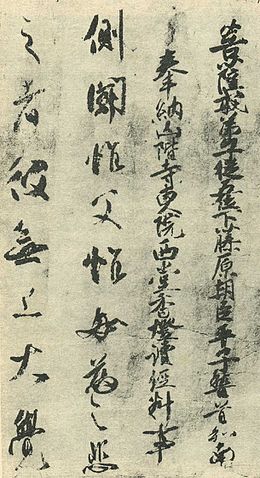 菩薩戒弟子従五位下藤原朝臣平子稽首和南
奉納山階寺東院西堂香燈讀經料事
側聞恃父恃母為之悲
之者彼無上大覺